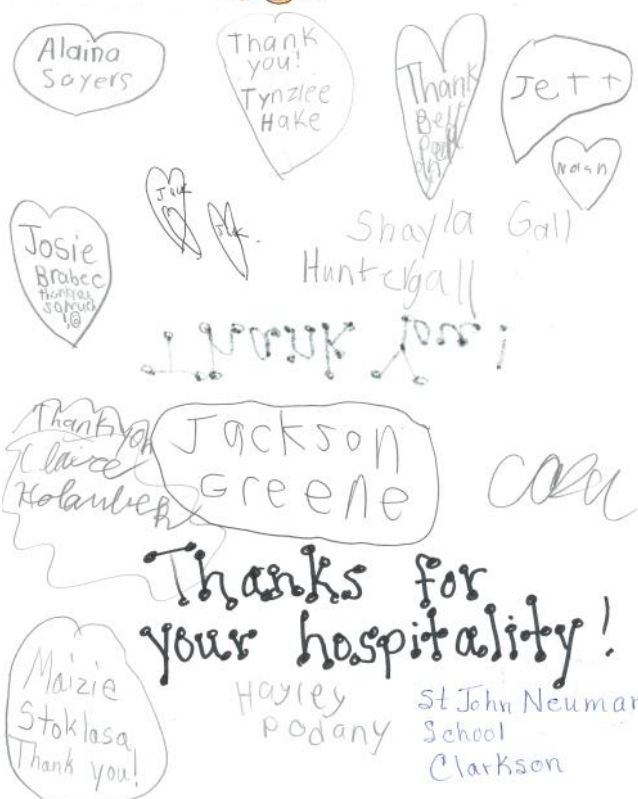 Alaina
Sayers
Thank
you!
Tynzlee
Hake
Thank
Jett
Nolan
Jack
Josie
Brabec
thank you
so much
!☺
Shayla Gall
Hunter gall
Thank you!
Thank you
Claire
Holoubek
Jackson
Greene
Thanks for
your hospitality!
Maizie
Stoklasa
Thank you!
Hayley
Podany
St John Neuman
School
Clarkson